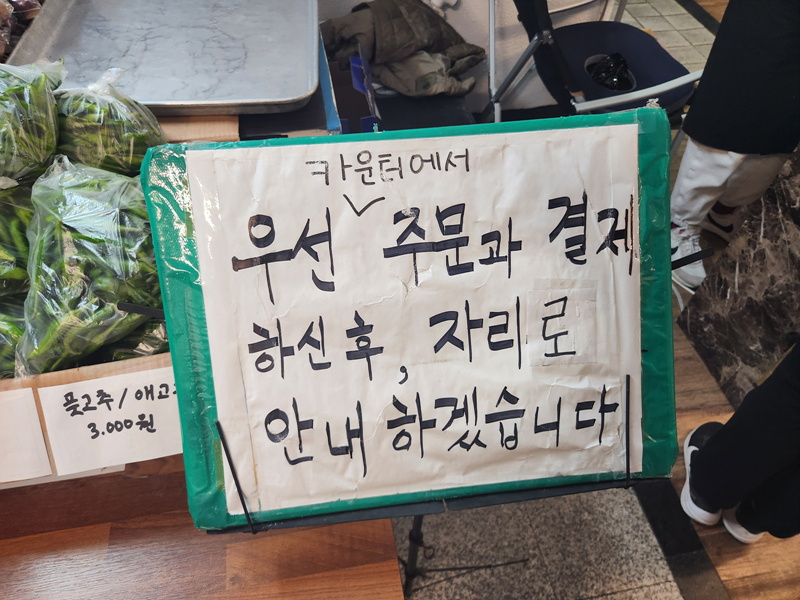 카운터에서
우선 주문과 결제
하신 후, 자리로
안내 하겠습니다
풋고추/애고
3.000원